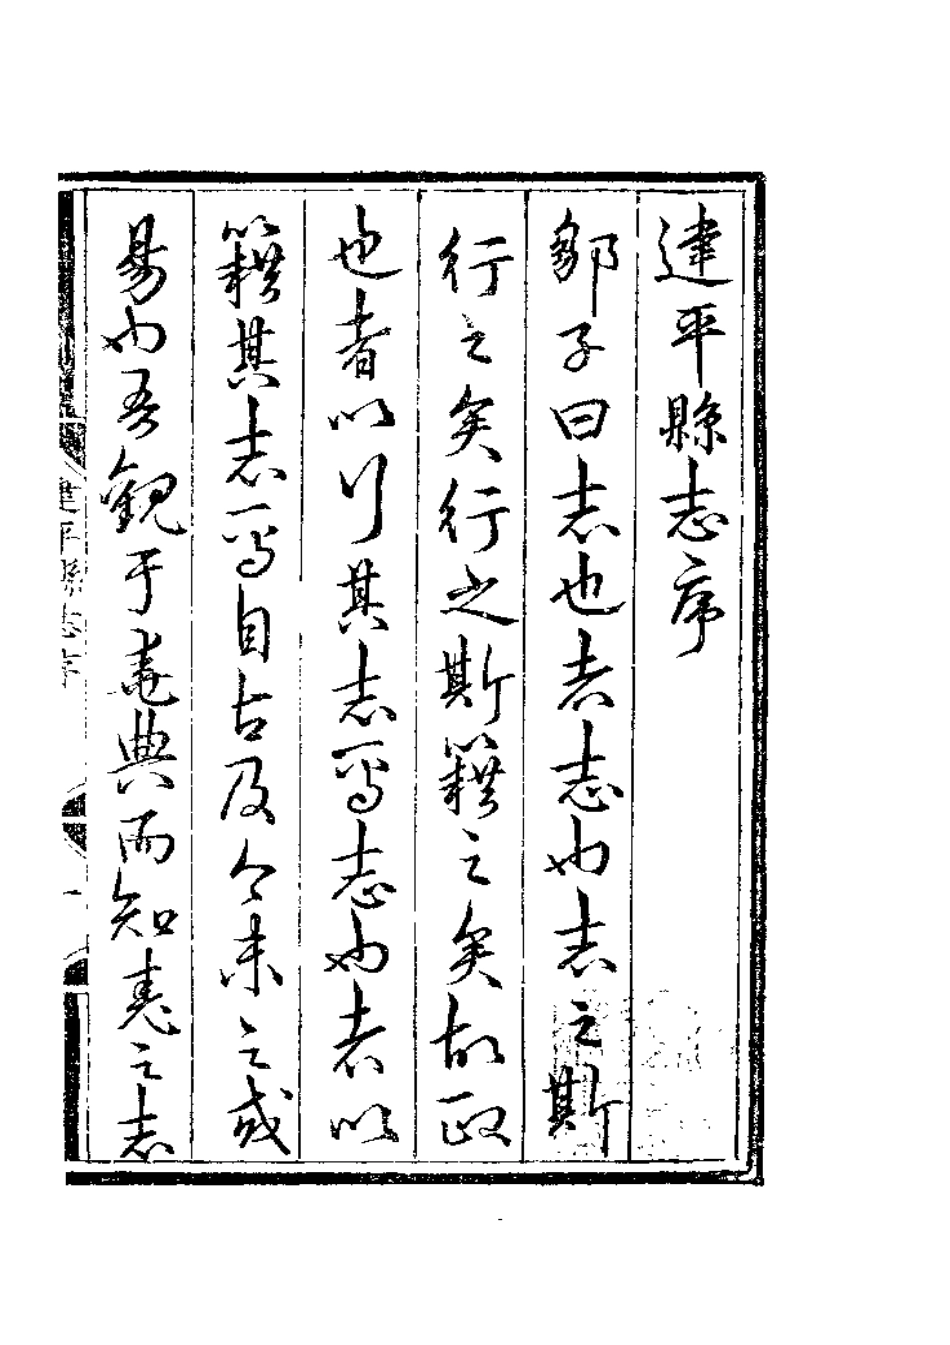 建平縣志序
鄒子曰志也者志也志之斯
行之矣行之斯籍之矣故政
也者以行其志焉志也者以
籍其志焉自古及今未之或
易也吾觀于堯典而知堯之志
建平縣志序
一